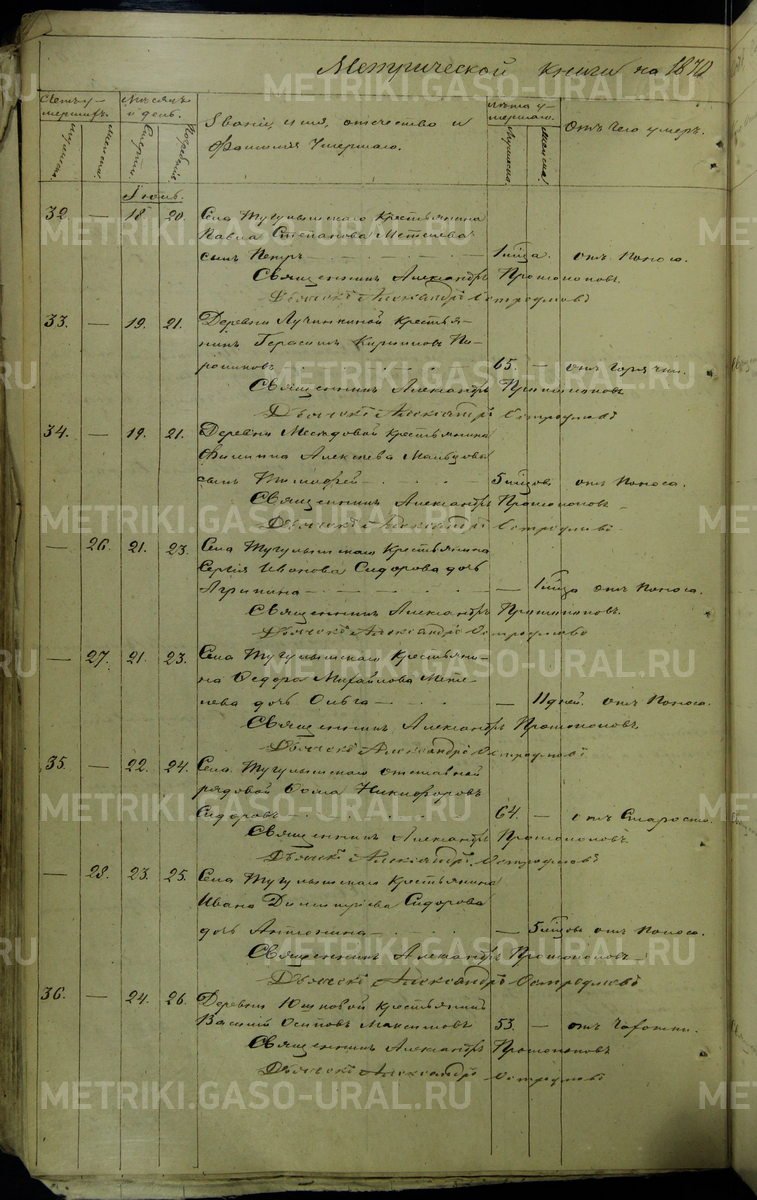 Метрической книги на 1870
Счетъ умершихъ.
Мѣсяцъ и день.
Званіе, имя, отечество и фамилія Умершаго.
Лѣта умершаго.
Отъ чего умеръ.
Мужеска.
Женска.
Смерти.
Погребенія.
Мужеска.
Женска.
Іюль.
32. — 18 20. Села Тугулымскаго Крестьянина
Павла Степанова
сынъ Петръ — 1 мѣсца. отъ Поноса.
Священникъ Александръ Протопоповъ.
Дьячекъ Александръ Остроумовъ
33. — 19. 21. Деревни Лучинкиной Крестья-
нинъ Герасимъ Кириловъ
65. — отъ Горячки.
Священникъ Александръ Протопоповъ
Дьячекъ Александръ Остроумовъ
34. — 19. 21. Деревни Крестьянина
Филиппа Алексѣева Мальцова
сынъ Тимофей — 5 мѣсцовъ отъ Поноса.
Священникъ Александръ Протопоповъ
Дьячекъ Александръ Остроумовъ
— 26. 21. 23. Села Тугулымскаго Крестьянина
Сергія Иванова Сидорова дочь
Агрипина — — 1 мѣсца отъ Поноса.
Священникъ Александръ Протопоповъ.
Дьячекъ Александръ Остроумовъ
— 27. 21. 23. Села Тугулымскаго Крестьяни-
на Ѳедора Михайлова
дочь Ольга — — 11 дней. отъ Поноса.
Священникъ Александръ Протопоповъ.
Дьячекъ Александръ Остроумовъ
35. — 22. 24. Села Тугулымскаго отставной
рядовой Ѳома Никифоровъ
Сидоровъ 64. — отъ Старости.
Священникъ Александръ Протопоповъ.
Дьячекъ Александръ Остроумовъ
— 28. 23. 25. Села Тугулымскаго Крестьянина
Ивана Димитріева Сидорова
дочь Антонина — — 5 мѣсцовъ отъ Поноса.
Священникъ Александръ Протопоповъ
Дьячекъ Александръ Остроумовъ
36. — 24. 26. Деревни Юшковой Крестьянинъ
Василій Осиповъ Максимовъ 53. — отъ Чахотки.
Священникъ Александръ Протопоповъ
Дьячекъ Александръ Остроумовъ
METRIKI.GASO-URAL.RU